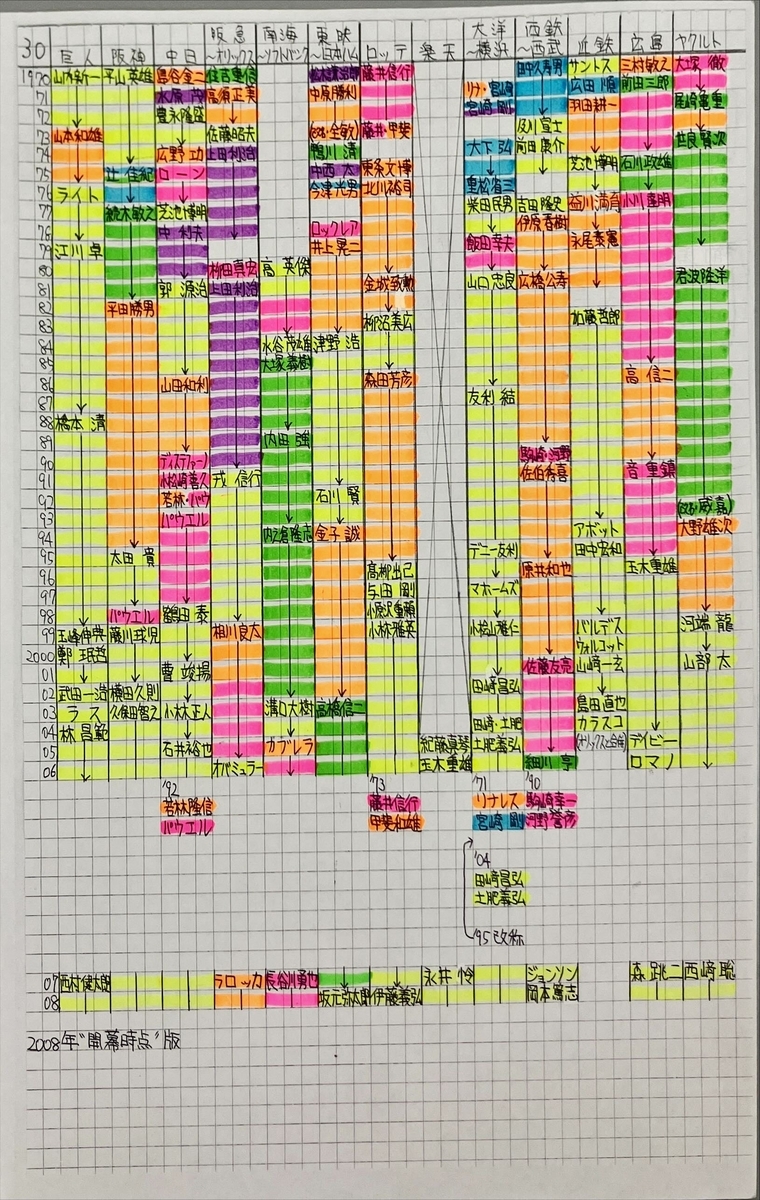 30
阪急 南海 東映 大洋 西鉄
巨人 阪神 中日 ~オリックス ~ソフトバンク ~日本ハム ロッテ 楽天 ~横浜 ~西武 近鉄 広島 ヤクルト
1970 山内新一 平山英雄 島谷金二 住吉重信 藤井信行 田中久寿男 サントス 三村敏之 大塚 徹
71 水原 茂 高須正美 中原勝利 リナ・宮崎 広田 順 前田三郎
72 豊永隆盛 宮崎 剛 羽田耕一 尾崎亀重
73 山本和雄 佐藤昭夫 藤井・甲斐 及川宣士 世良賢次
74 広野 功 上田利治 鴨川 清 大下 弘 前田康介
75 辻 佳紀 ローン 中西 太 東条文博 芝池博明 石川政雄
76 ライト 今津光男 北川裕司 重松省三 益川満育 小川達明
77 続木敏之 芝池博明 柴田民男 吉田隆史
78 中 利夫 ロックレア 伊原春樹 永尾泰憲
79 江川 卓 井上晃二 飯田幸夫
80 柳田真宏 高 英傑 君波隆洋
81 郭 源治 上田利治 金城致勲 山口忠良 広橋公寿
82 平田勝男
83 柳沼美広 加藤哲郎
84 水谷茂雄 津野 浩
85 大塚義樹
86 山田和利 森田芳彦 高 信二
87 友利 結
88 橋本 清
89 内田 強
90 ディステファーノ 駒崎・河野
91 小松崎善久 戎 信行 佐伯秀喜 音 重鎮
92 若林・パウ 石川 賢
93 パウエル
94 内之倉隆志 金子 誠 アボット 大野雄次
95 太田 貴 デニー友利 田中宏和
96 高柳出己 原井和也 玉木重雄
97 与田 剛 マホームズ
98 パウエル 鶴田 泰 小原沢重頼
99 玉峰伸典 藤川球児 相川良太 小林雅英 小桧山雅仁 バルデス 河端 龍
2000 鄭 珉哲 ウォルコット
01 曹 竣揚 佐藤友亮 山崎一玄 山部 太
02 武田一浩 横田久則 田崎昌弘
03 ラス 久保田智之 小林正人 溝口大樹 高橋信二 島田直也
04 林 昌範 田崎・土肥 カラスコ
05 石井裕也 カブレラ 紀藤真琴 土肥義弘 (オリックスと合併) デイビー
06 オバミュラー 玉木重雄 細川 亨 ロマノ
'92 '73 '71 '90
若林隆信 藤井信行 リナレス 駒崎幸一
パウエル 甲斐和雄 宮崎 剛 河野誉彦
'04
田崎昌弘
土肥義弘
'95改称
07 西村健太朗 ラロッカ 長谷川勇也 永井 怜 ジョンソン 森 跳二 西崎 聡
08 坂元弥太郎 伊藤義弘 岡本篤志
2008年"開幕時点"版